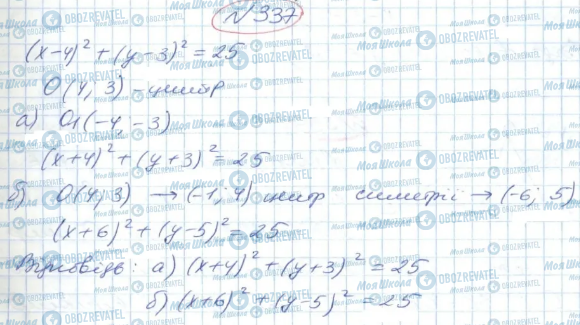 № 337
(x-4)² + (y-3)² = 25
O(4; 3) - центр
а) O₁(-4; -3)
(x+4)² + (y+3)² = 25
б) O(4; 3) → (-1; 4) центр симетрії → (-6; 5)
(x+6)² + (y-5)² = 25
Відповідь: а) (x+4)² + (y+3)² = 25
б) (x+6)² + (y-5)² = 25
Моя Школа
OBOZREVATEL